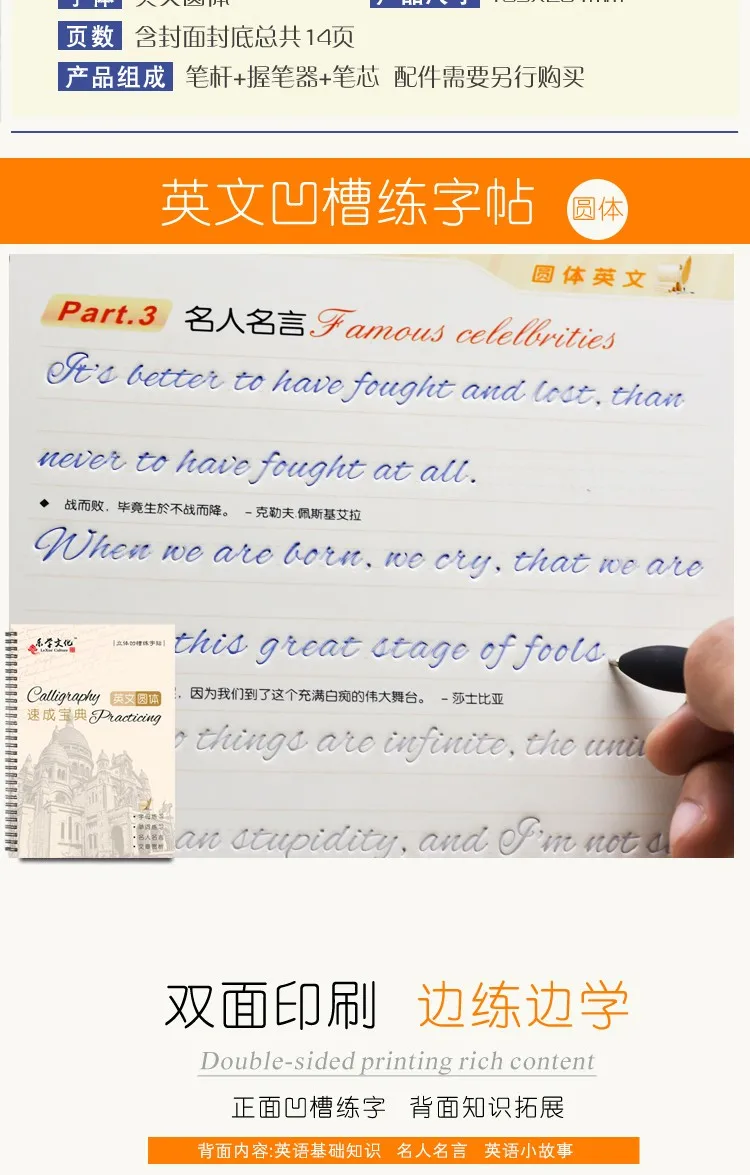 字体 英文圆体 产品尺寸
页数 含封面封底总共14页
产品组成 笔杆+握笔器+笔芯 配件需要另行购买
英文凹槽练字帖 圆体
圆体英文
Part.3 名人名言 Famous celelbrities
It's better to have fought and lost, than
never to have fought at all.
◆ 战而败，毕竟生於不战而降。 –克勒夫.佩斯基艾拉
When we are born, we cry, that we are
this great stage of fools
因为我们到了这个充满白痴的伟大舞台。 –莎士比亚
things are infinite, the
an stupidity, and I'm not
乐学文化
LeXue Culture
立体凹槽练字帖
Calligraphy 英文圆体
速成宝典 Practicing
• 字母练习
• 单词练习
• 名人名言
• 文章赏析
双面印刷 边练边学
Double-sided printing rich content
正面凹槽练字 背面知识拓展
背面内容:英语基础知识 名人名言 英语小故事